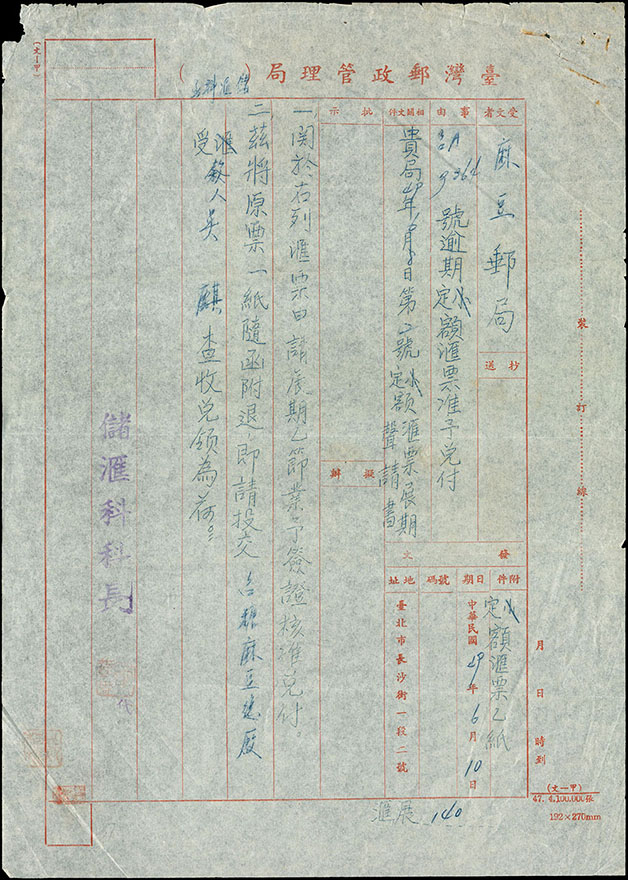 (文一甲)
臺灣郵政管理局(儲匯科)
受文者
麻豆郵局
抄送
事由
3364號逾期定小額匯票准予兌付
相關文件
貴局49年6月8日第 號定小額匯票展期聲請書
批示
擬辦
一、関於右列匯票田請展期乙節業予簽證核准兌付。
二、茲將原票一紙隨函附退,即請投交 台糖麻豆總廠
受匯款人吳 麒 查收兌領為荷。
儲匯科科長
代
發文
附件
定小額匯票乙紙
日期
中華民國49年6月10日
號碼
地址
臺北市長沙街一段二號
匯展 140
月 日 時到
裝訂線
(文一甲)
47. 4.100.000張
192×270mm